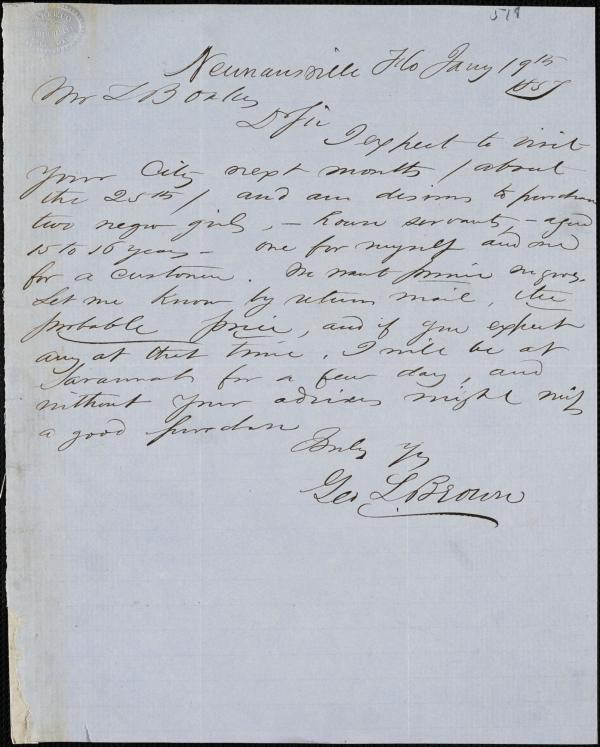 519
Newnansville Flo Jany 19th
1857
Mr Z B Oakes
Dr Sir
I expect to visit
Your City next month / about
the 25th / and am desirous to purchase
two negro girls, – house servants, – aged
15 to 16 years – one for myself and one
for a customer. We want prime negroes.
Let me know by return mail, the
probable price, and if you expect
any at that time. I will be at
Savannah for a few days, and
without your advices might miss
a good purchase
Truly Yrs
Geo L. Brown